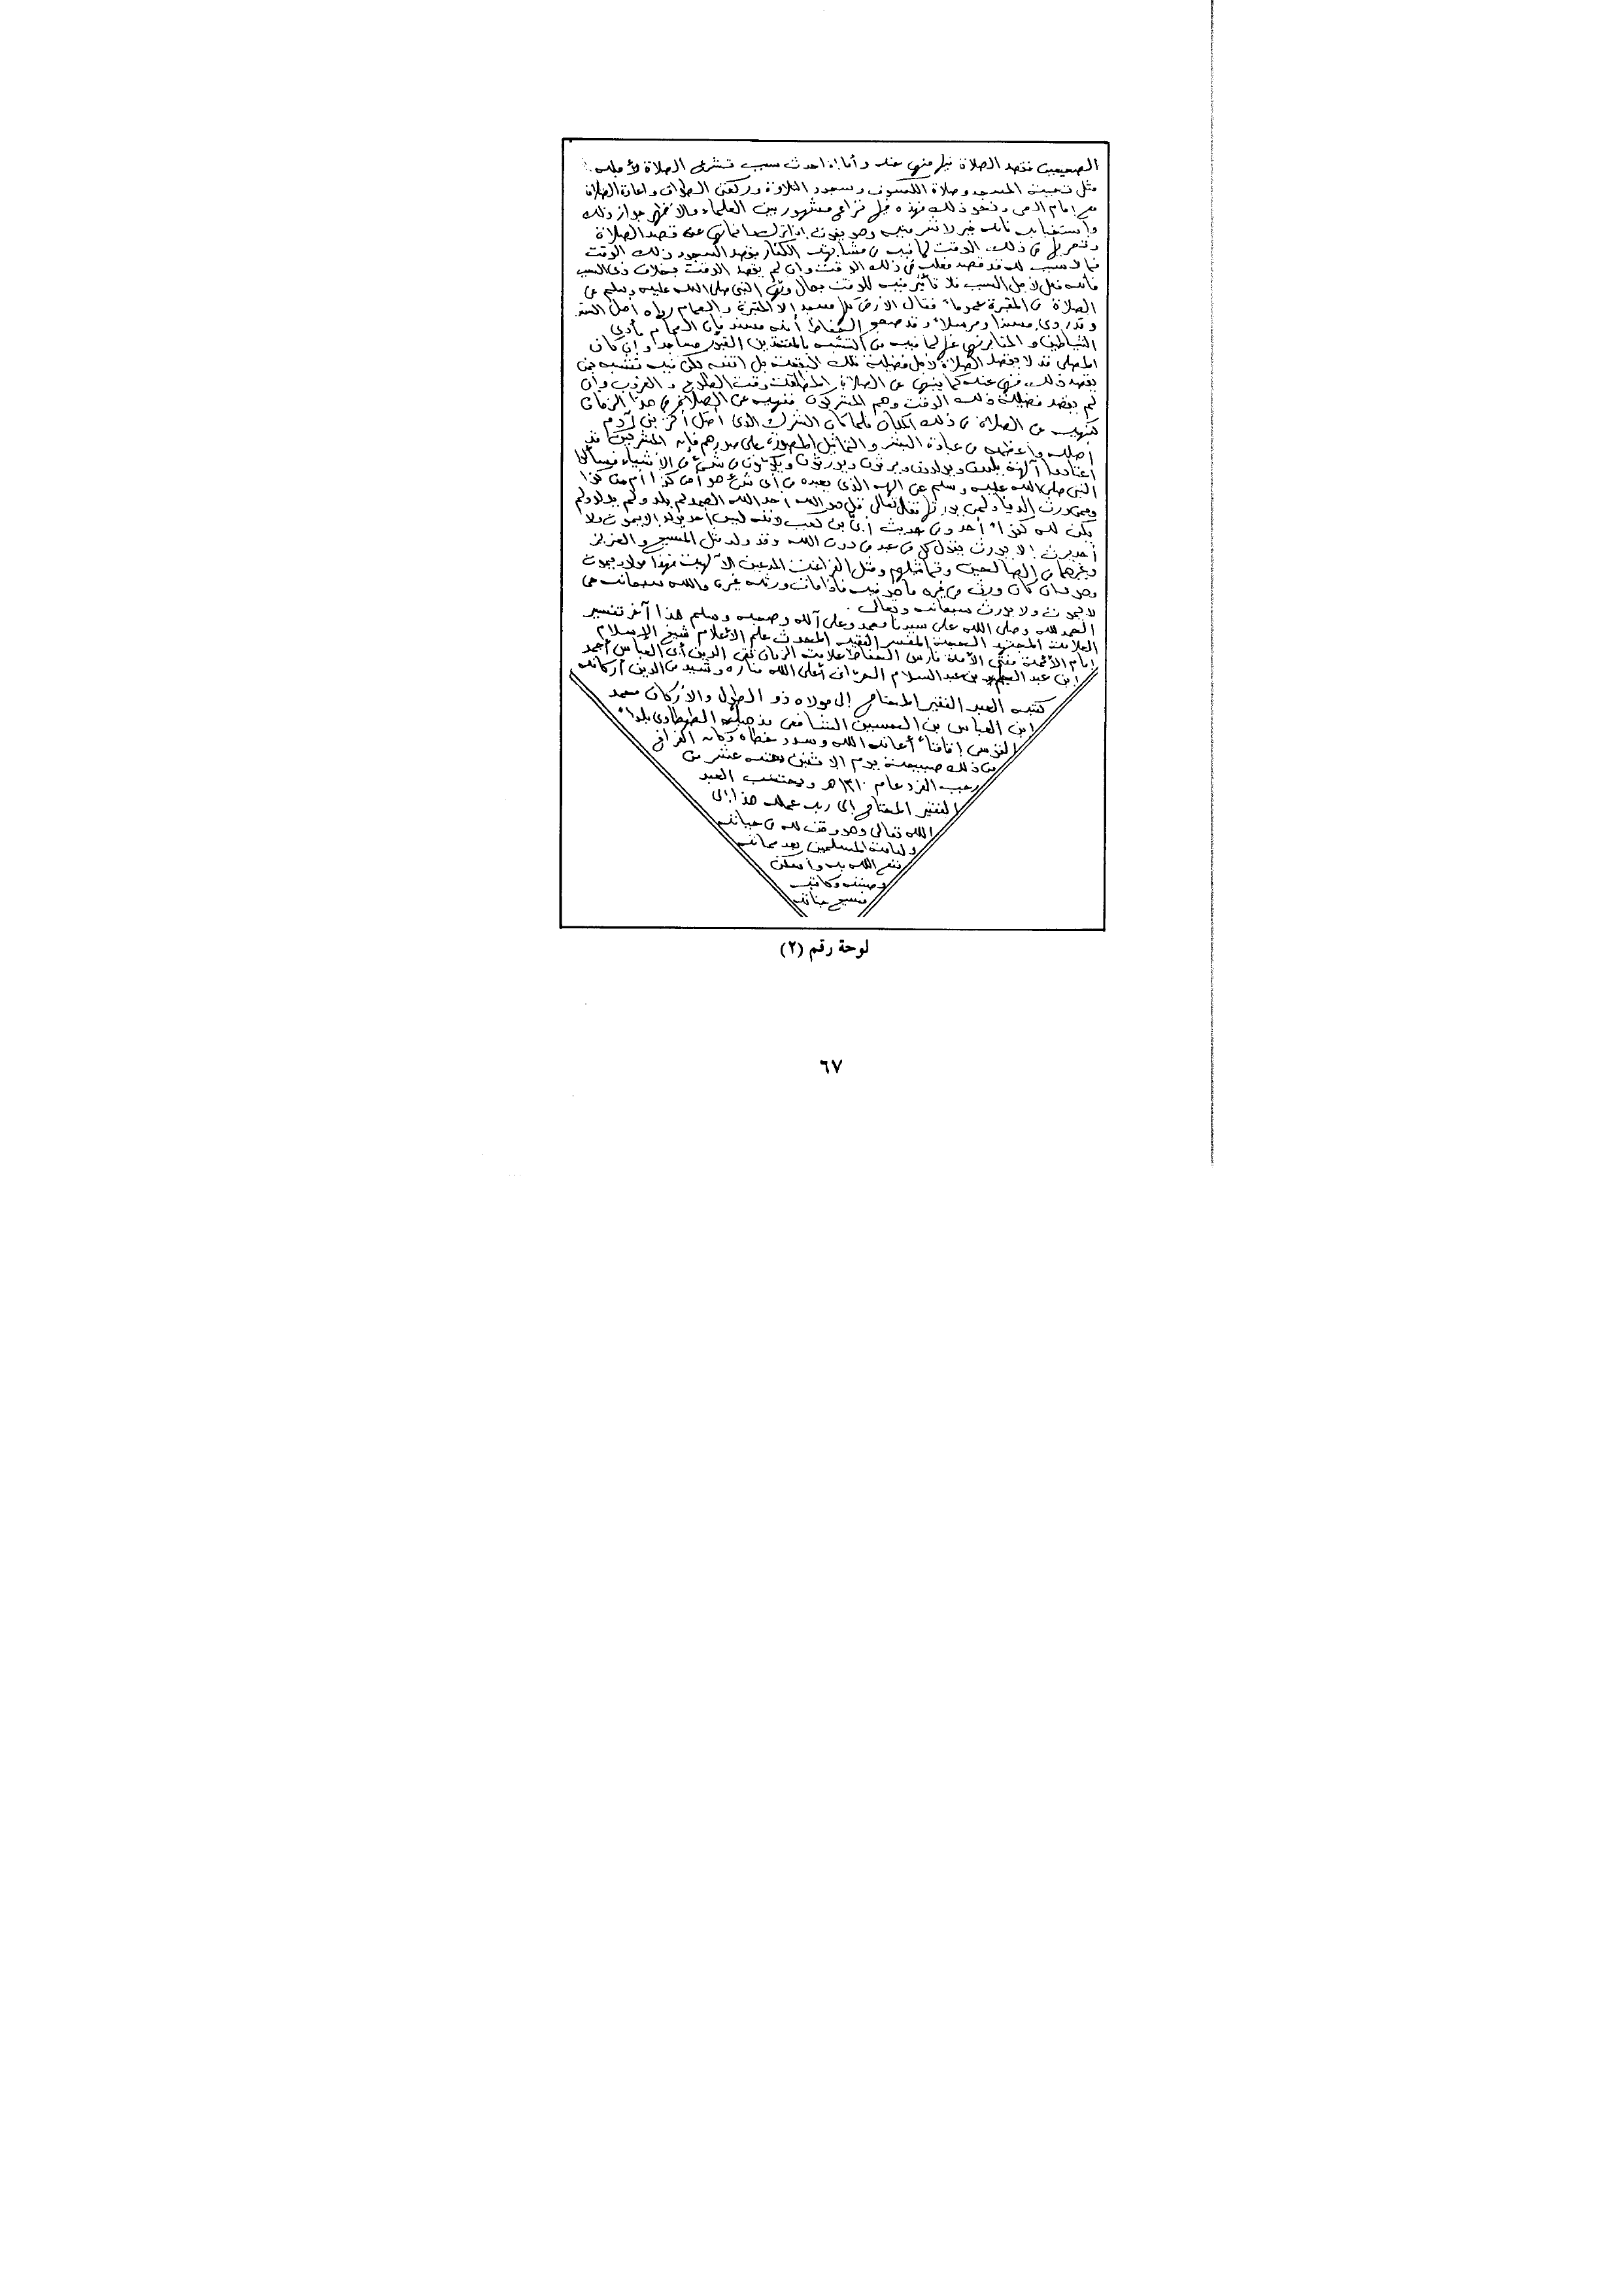 الصحيحين فقصد الصلاة فيها منهى عنه وأما إذا حدث سبب تشرع الصلاة لأجله
مثل تحية المسجد وصلاة الكسوف وسجود التلاوة وركعتى الطواف واعادة الصلاة
مع إمام الحى ونحو ذلك فهذه فيها نزاع مشهور بين العلماء والأظهر جواز ذلك
واستحبابه فانه خير لا شر فيه وهو يفوت إذا ترك وانما نهى عن قصد الصلاة
وتحريها فى ذلك الوقت لما فيه من مشابهة الكفار بقصد السجود ذلك الوقت
فما لا سبب له قد قصد فعله فى ذلك الوقت وان لم يقصد الوقت بخلاف ذى السبب
فانه فعل لاجل السبب فلا تأثير فيه للوقت بحال ونهى النبى صلى الله عليه وسلم عن
الصلاة فى المقبرة عموما فقال الأرض كلها مسجد الا المقبرة والحمام رواه أهل السنن
وقد روى مسندا ومرسلا وقد صحح الحفاظ أنه مسند فإن الحمام مأوى
الشياطين والمقابر نهى عنها لما فيه من التشبه بالمتخذين القبور مساجد وإن كان
المصلى قد لا يقصد الصلاة لاجل فضيلة تلك البقعة بل اتفق له لكن فيه تشبه بمن
يقصد ذلك فنهى عنه كما ينهى عن الصلاة المطلقة وقت الطلوع والغروب وان
لم يقصد فضيلة ذلك الوقت وهم المشركون فنهيه عن الصلاة فى هذا الزمان
كنهيه عن الصلاة فى ذلك المكان فلما كان الشرك الذى أضل أكثر بنى آدم
أصله وأعظمه من عبادة البشر والتماثيل المصورة على صورهم فإن المشركين قد
اعتادوا آلهة يلدون ويولدون ويرثون ويورثون ويكونون من شىء من الأشياء فسألوا
النبى صلى الله عليه وسلم عن إلهه الذى يعبده من أى شىء هو أمن كذا أم من كذا
وممن ورث الدنيا ولمن يورثها فقال تعالى قل هو الله أحد الله الصمد لم يلد ولم يولد ولم
يكن له كفوا أحد وفى حديث أبى بن كعب لانه ليس أحد يولد الا يموت ولا
أحد يرث إلا يورث يقول كل من عبد من دون الله وقد ولد مثل المسيح والعزير
وغيرهما من الصالحين وتماثيلهم ومثل الفراعنة المدعين الآلهية فهذا مولود يموت
وهو وان كان ورث من غيره ما هو فيه فاذا مات ورثه غيره والله سبحانه حى
لا يموت ولا يورث سبحانه وتعالى .
الحمد لله وصلى الله على سيدنا محمد وعلى آله وصحبه وسلم هذا آخر تفسير
العلامة المجتهد الحجة المفسر الفقيه المحدث علم الأعلام شيخ الإسلام
إمام الأئمة مفتى الأمة فارس الحفاظ علامة الزمان تقى الدين أبى العباس أحمد
ابن عبد الحليم بن عبد السلام الحرانى أعلى الله مناره وشيد من الدين أركانه
كتبه العبد الفقير المحتاج إلى مولاه ذو الطول والأركان محمد
ابن العباس بن الحسين الشافعى مذهبا الطهطاوى بلدا
القدسى إقامة أعانه الله وسدد خطاه وكان الفراغ
من ذلك صبيحة يوم الاثنين عشر من
رجب الفرد عام ١٣١٠هـ ويحتسب العبد
الفقير المحتاج إلى ربه عمله هذا إلى
الله تعالى وهو وقف لله فى حياته
ولعامة المسلمين بعد مماته
نفع الله به وأسكن
وكاتبه
فسيح جناته
لوحة رقم (٢)
٦٧